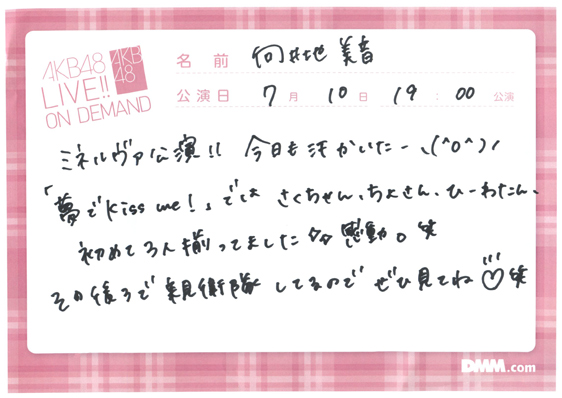 AKB48
LIVE!!
ON DEMAND
AKB
48
名前 向井地 美音
公演日 7月 10日 19:00公演
ミネルヴァ公演!! 今日も汗かいたー、(^o^)ノ
「夢でkiss me!」では さくちゃん、ちよさん、ひーわたん、
初めて3人揃ってました 感動。笑
その後ろで親衛隊してるので ぜひ見てね♡笑
DMM.com